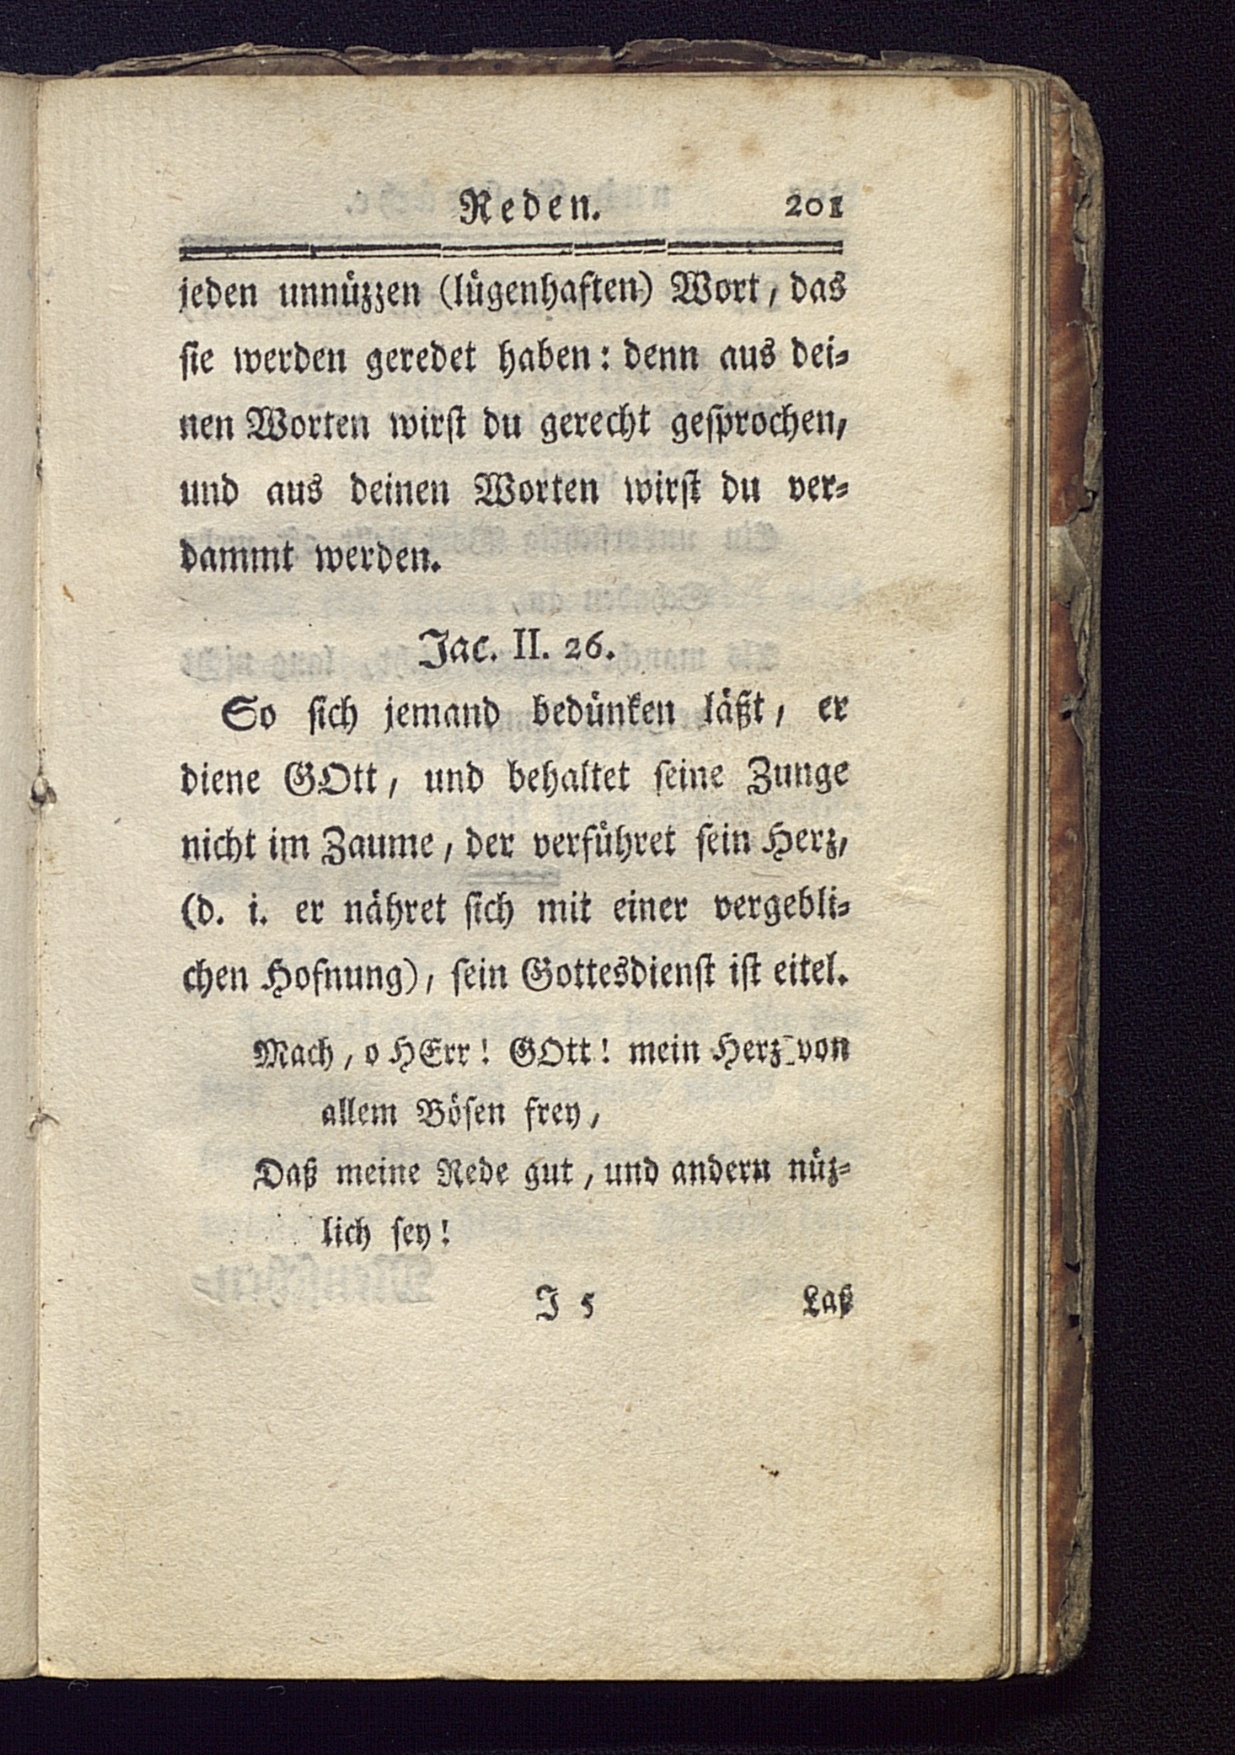 Reden. 201
jeden unnüzzen (lügenhaften) Wort, das
sie werden geredet haben: denn aus dei-
nen Worten wirst du gerecht gesprochen,
und aus deinen Worten wirst du ver-
dammt werden.
Jac. II. 26.
So sich jemand bedünken läßt, er
diene GOtt, und behaltet seine Zunge
nicht im Zaume, der verführet sein Herz,
(d. i. er nähret sich mit einer vergebli-
chen Hofnung), sein Gottesdienst ist eitel.
Mach, o HErr! GOtt! mein Herz von
allem Bösen frey,
Daß meine Rede gut, und andern nüz-
lich sey!
J 5 Laß